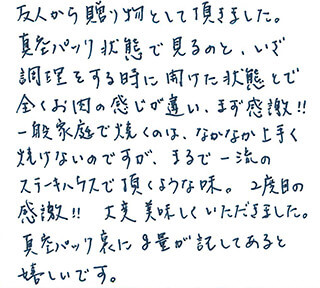 友人から贈り物として頂きました。
真空パック状態で見るのと、いざ
調理をする時に開けた状態とで
全くお肉の感じが違い、まず感激!!
一般家庭で焼くのは、なかなか上手く
焼けないのですが、まるで一流の
ステーキハウスで頂くような味。2度目の
感激!! 大変美味しくいただきました。
真空パック裏にg量が記してあると
嬉しいです。